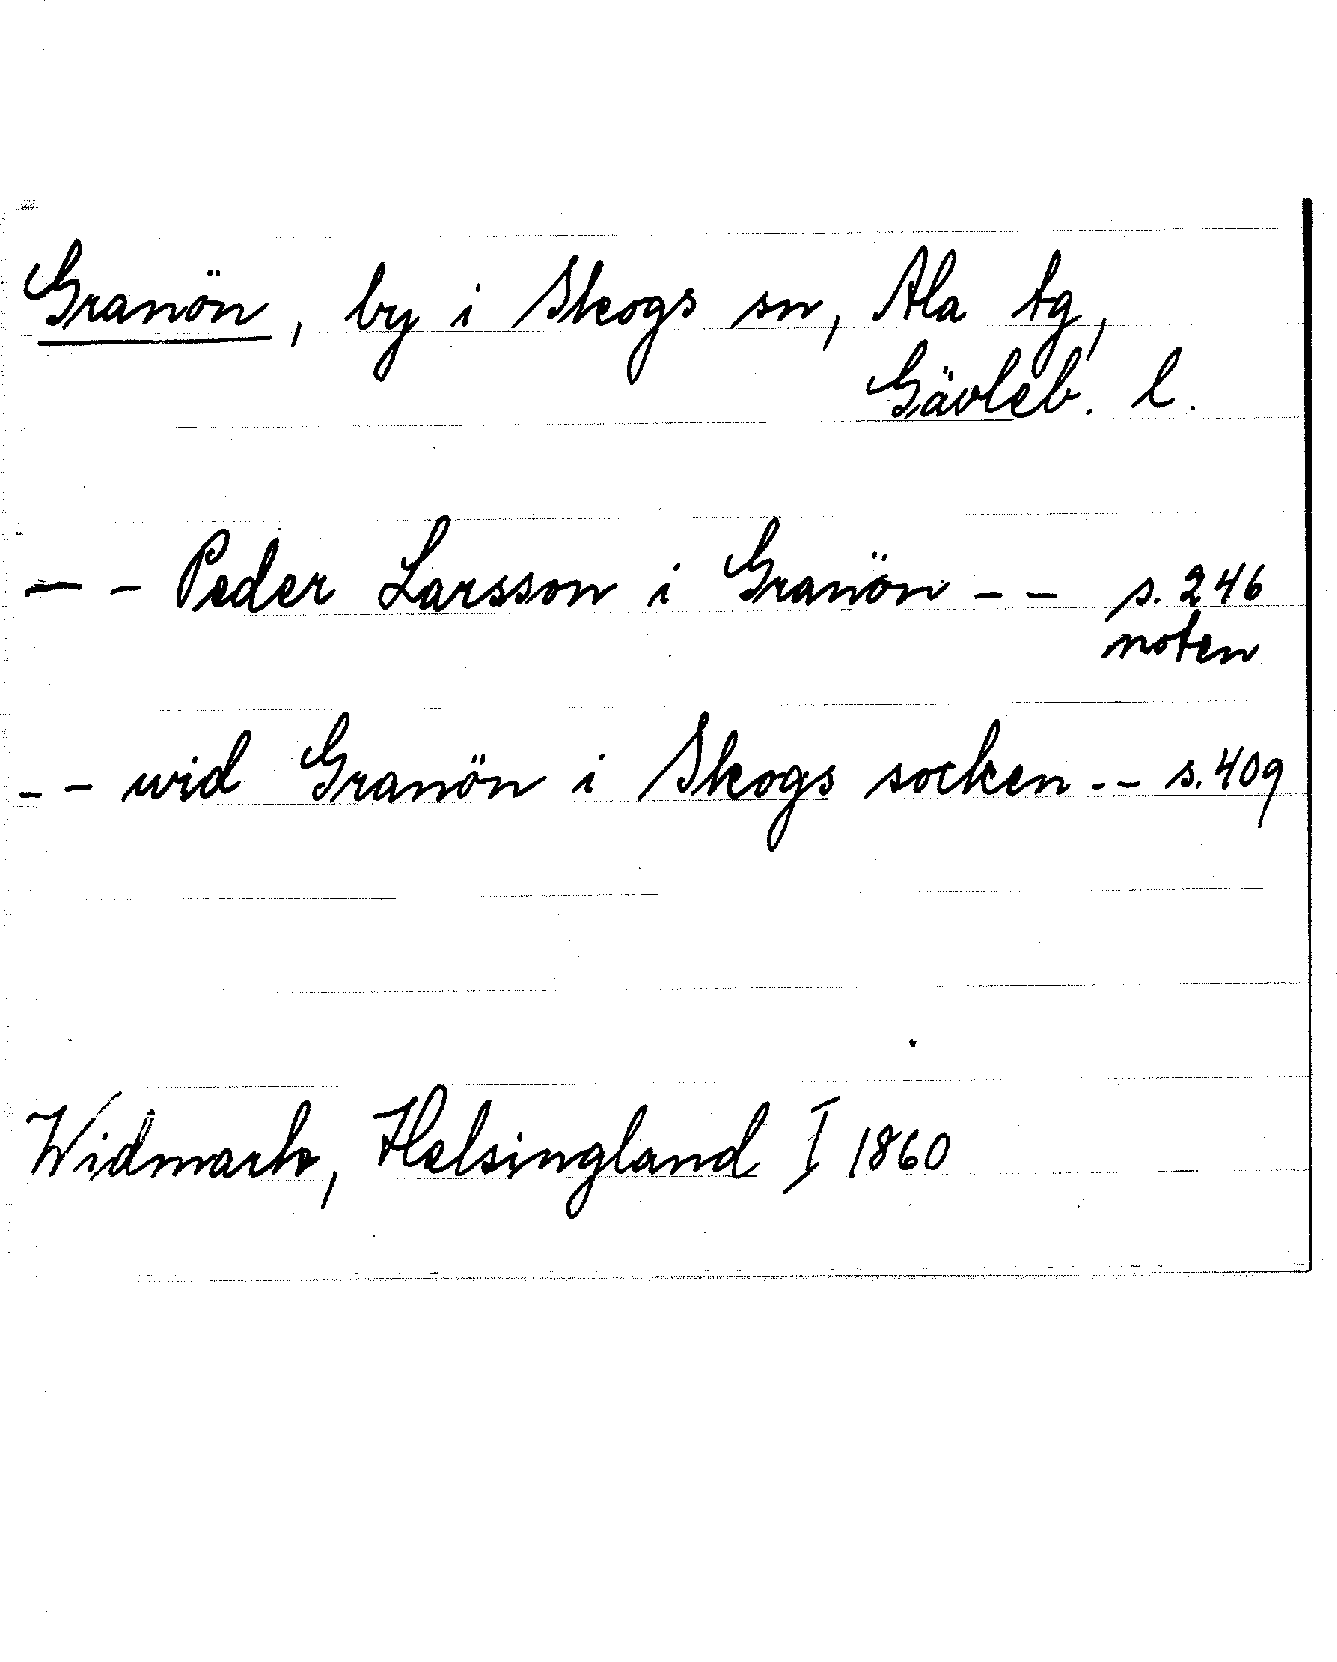 Granön, by i Skogs sn, Ala tg,
Gävleb. l.
- - Peder Larsson i Granön - - s. 246
noten
- - wid Granön i Skogs socken - - s. 409
Widmark, Helsingland I 1860